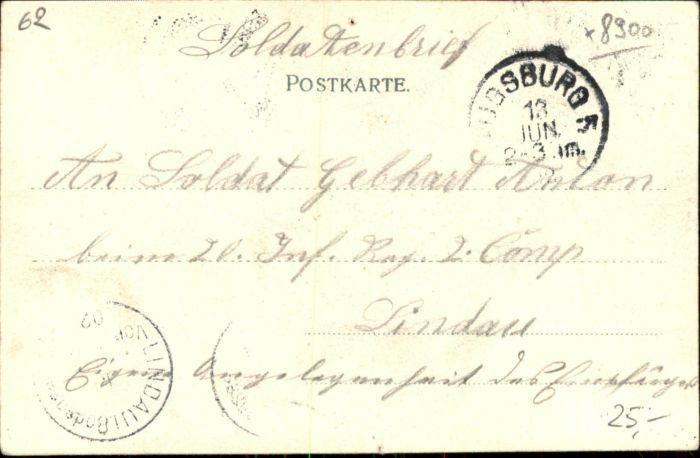 62
x8900
Soldatenbrief
POSTKARTE.
AUGSBURG 5
13
JUN.
2-3 Nm.
An Soldat Gebhart Anton
beim 20. Inf. Reg. 2. Comp
Lindau
LINDAU i. Bodensee
02
Eigene Angelegenheit des Empfängers
25,-